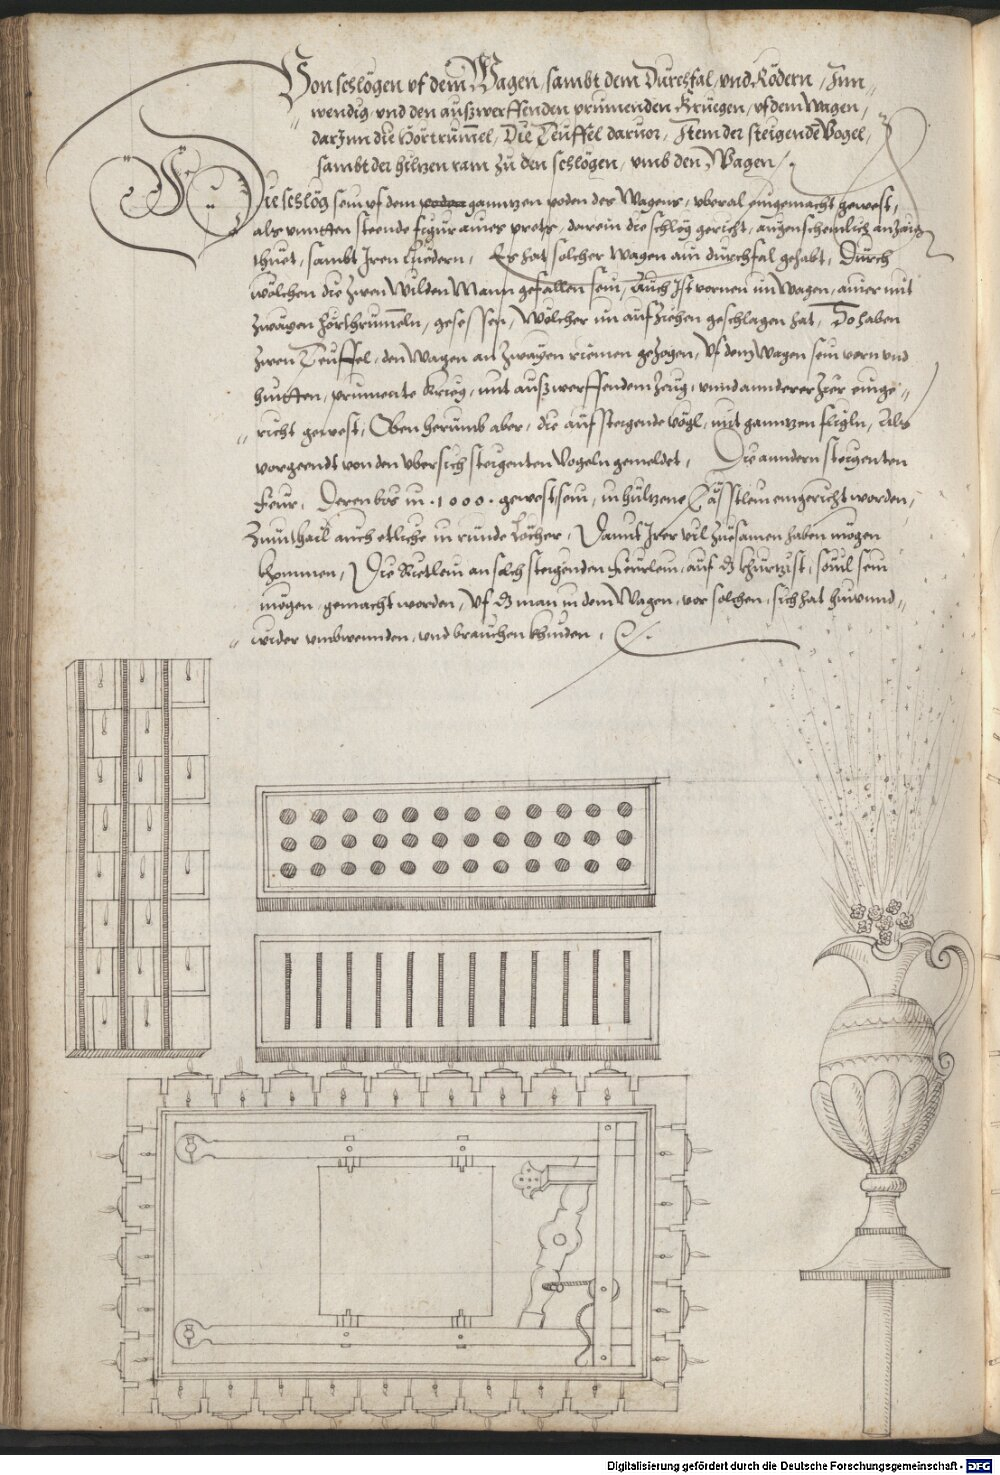 Von schlögen vf dem Wagen, sambt dem Durchfal, vnd Rödern, Inn„
wendig, vnd den außwerffenden prinnenden Kruegen, vf dem Wagen,
„ darzŭn die Hörtrummel, Die Teuffel daruor, Item der steigende Vogel,
sambt der hiltzen ram zŭ den schlögen, vmb den Wagen
Die schlög sein vf dem gantzen poden des Wagens, vberal eingemacht gewest,
als vnntten steende figur aines prets, darein die schlög gericht, augenscheinlich anzaig
thuet, sambt Iren Luedern, Er hat solcher Wagen ain durchfal gehabt, Durch
wölchen die zwen Wilden Mann gefallen sein, Auch Ist vornen im Wagen, ainer mit
zwayen hörthrummeln, gesessen, Wölcher im aufziehen geschlagen hat, So haben
zwen Teuffel, den Wagen an zwayen riemen gezogen, Vf dem Wagen sein vorn vnd
hintten, prinnente Krieg, mit außwerffendem Zeug, vnnd annderer Zier einge„
„ richt gewest, Oben herumb aber, die aufsteigende vögl, mit ganntzen fligln, Als
vorgeendt von den vbersich steigenten Vogeln gemeldet, Die anndern steigenten
feur, Deren bös in .1000. gewest sein, in hültzene Cässtlen eingericht worden,
Zum thail auch etliche in runde Löcher, Damit Irer vil zuesamen haben mögen
khommen, Die Rietlein an solch steigenden feurlein, auf dz khurtzist, souil sein
mügen, gemacht worden, Vf dz man in dem Wagen, vor solchen, sich hat hin vnnd„
„ wider vmbwennden, vnd brauchen khinden,
Digitalisierung gefördert durch die Deutsche Forschungsgemeinschaft - DFG